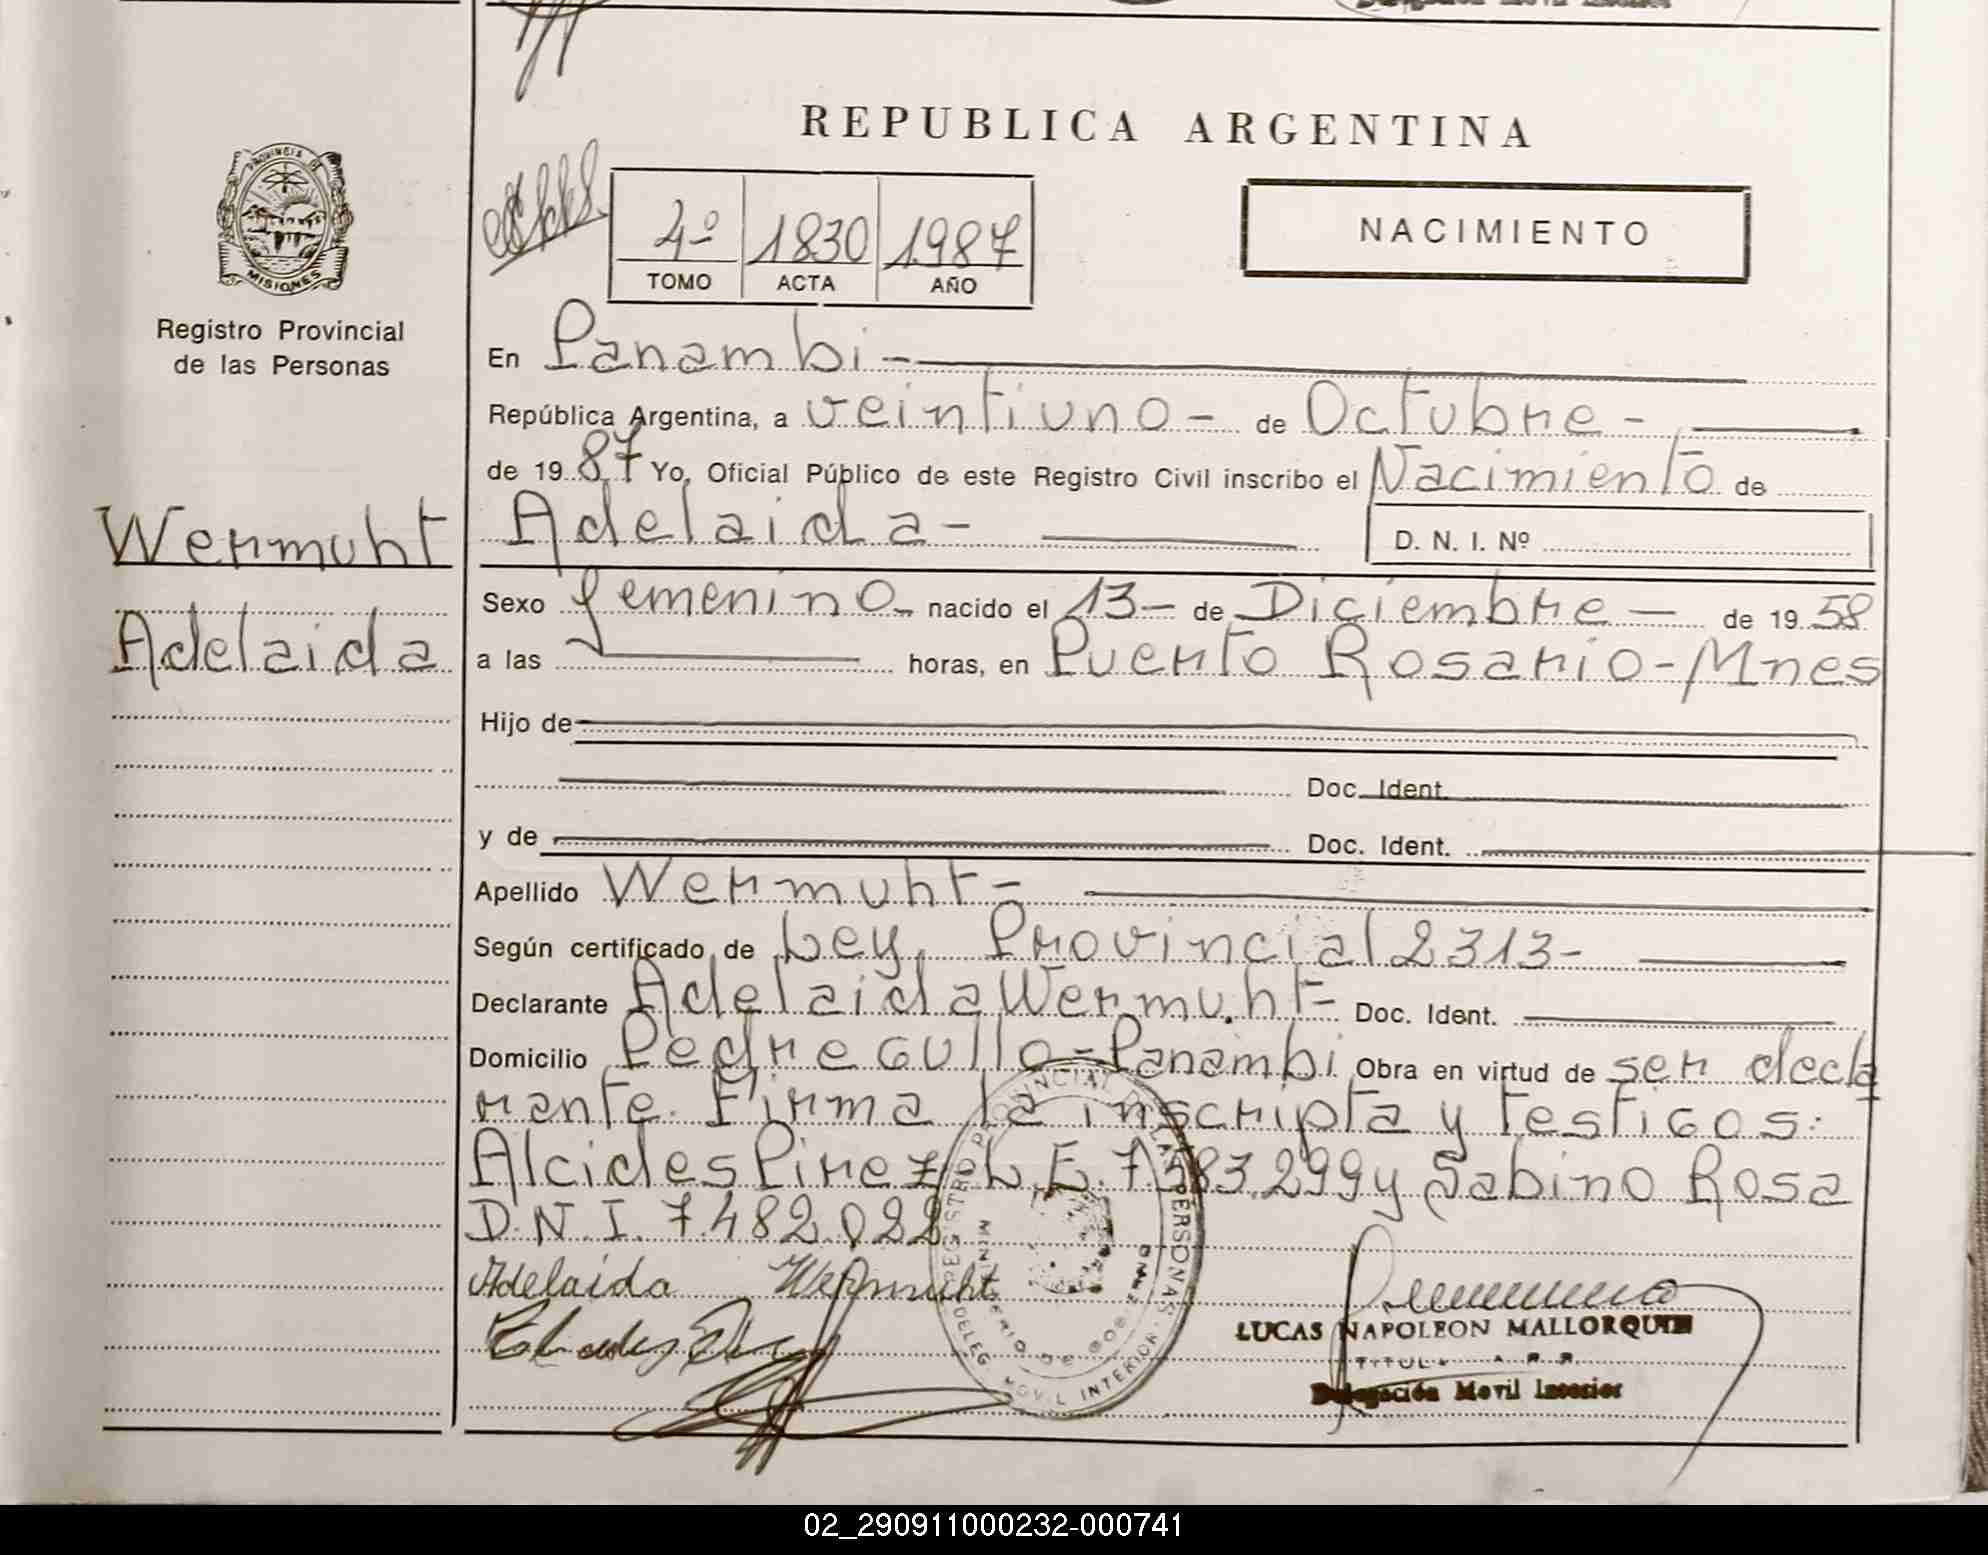 REPUBLICA ARGENTINA
PROVINCIA DE
MISIONES
Registro Provincial
de las Personas
4º 1830 1987
TOMO ACTA AÑO
NACIMIENTO
En Panambi -
República Argentina, a veintiuno - de Octubre -
de 19 87 Yo, Oficial Público de este Registro Civil inscribo el Nacimiento de
Wermuht
Adelaida
Adelaida -
D. N. I. Nº
Sexo femenino - nacido el 13 - de Diciembre - de 19 58
a las horas, en Puerto Rosario - Mnes
Hijo de
Doc. Ident.
y de Doc. Ident.
Apellido Wermuht -
Según certificado de Ley Provincial 2313 -
Declarante Adelaida Wermuht - Doc. Ident.
Domicilio Pedregullo - Panambi Obra en virtud de ser decla
rante. Firma la inscripta y testigos:
Alcides Pirez L.E. 7.583.299 y Sabino Rosa
D.N.I. 7.482.022
Adelaida Wermuht
REGISTRO PROVINCIAL DE LAS PERSONAS
DELEG. MOVIL INTERIOR
LUCAS NAPOLEON MALLORQUIN
Delegación Movil Interior
02_290911000232-000741